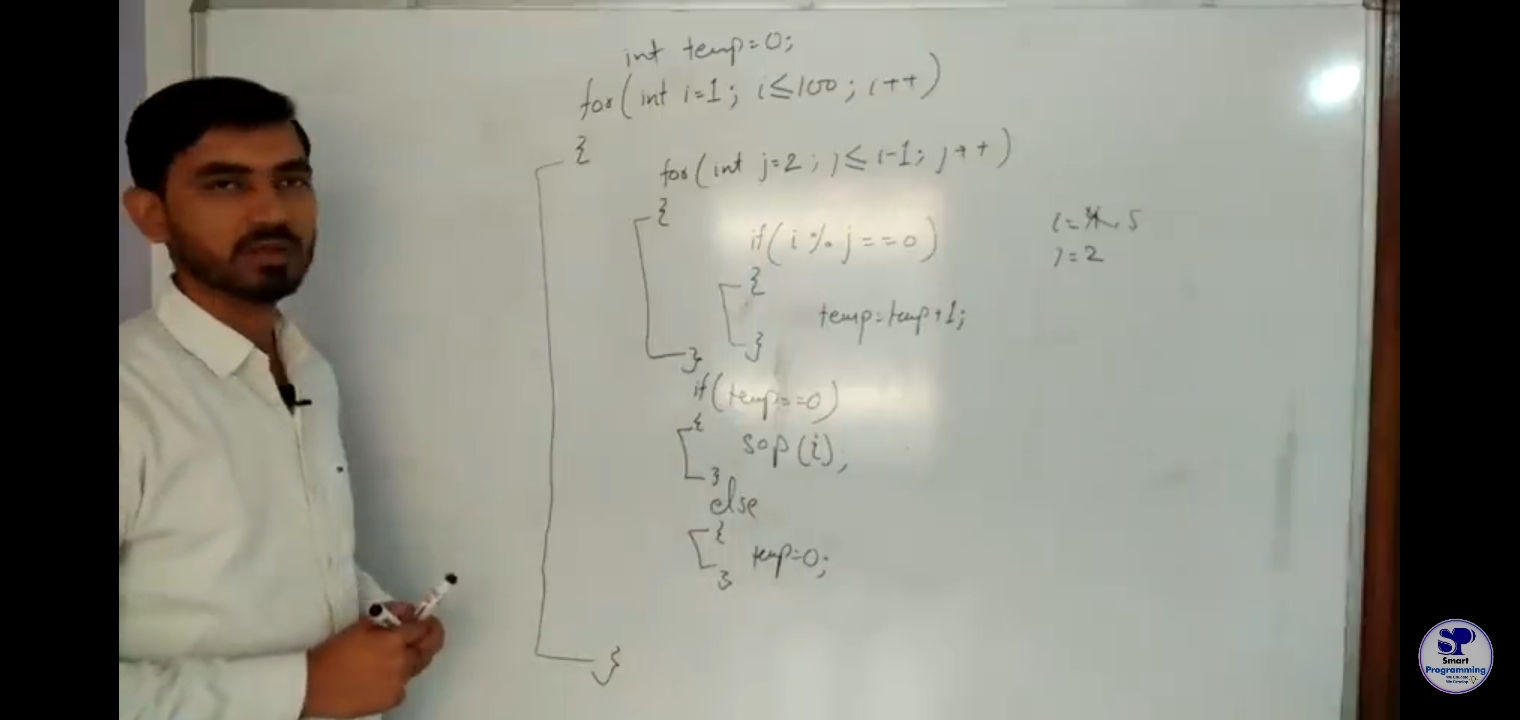 int temp=0;
for(int i=1; i≤100; i++)
{
for(int j=2; j≤i-1; j++)
{
if(i % j==0)
{
temp=temp+1;
}
}
if(temp==0)
{
sop(i);
}
else
{
temp=0;
}
}
i= 5
j=2
SP
Smart
Programming
We Educate
We Develop